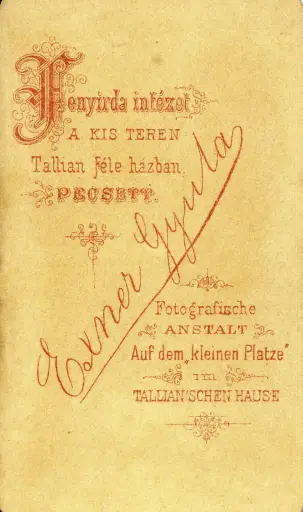 Fenyirda intézet
A KIS TEREN
Tallian féle házban,
PECSETT.
Exner Gyula
Fotografische
ANSTALT
Auf dem „kleinen Platze"
IM
TALLIAN'SCHEN HAUSE